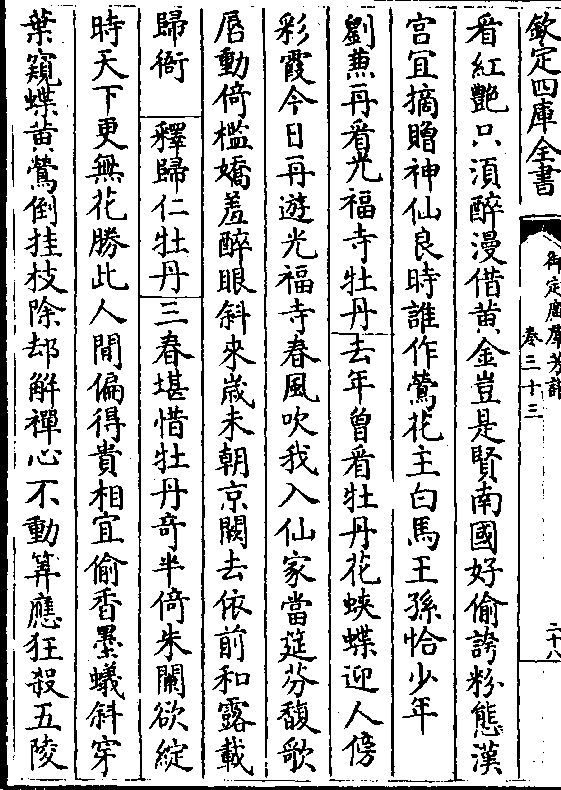 欽定四庫全書
御定廣羣芳譜
卷三十三
二十八
看紅艷只須醉漫借黄金豈是賢南國好偷誇粉態漢
宮宜摘贈神仙良時誰作鶯花主白馬王孫恰少年
劉兼再看光福寺牡丹 去年曾看牡丹花蛺蝶迎人傍
彩霞今日再遊光福寺春風吹我入仙家當筵芬馥歌
唇動倚檻嬌羞醉眼斜來歲未朝京闕去依前和露載
歸衙 釋歸仁牡丹 三春堪惜牡丹奇半倚朱闌欲綻
時天下更無花勝此人間偏得貴相宜偷香墨蟻斜穿
葉窺蝶黄鶯倒挂枝除却解禪心不動筭應狂殺五陵